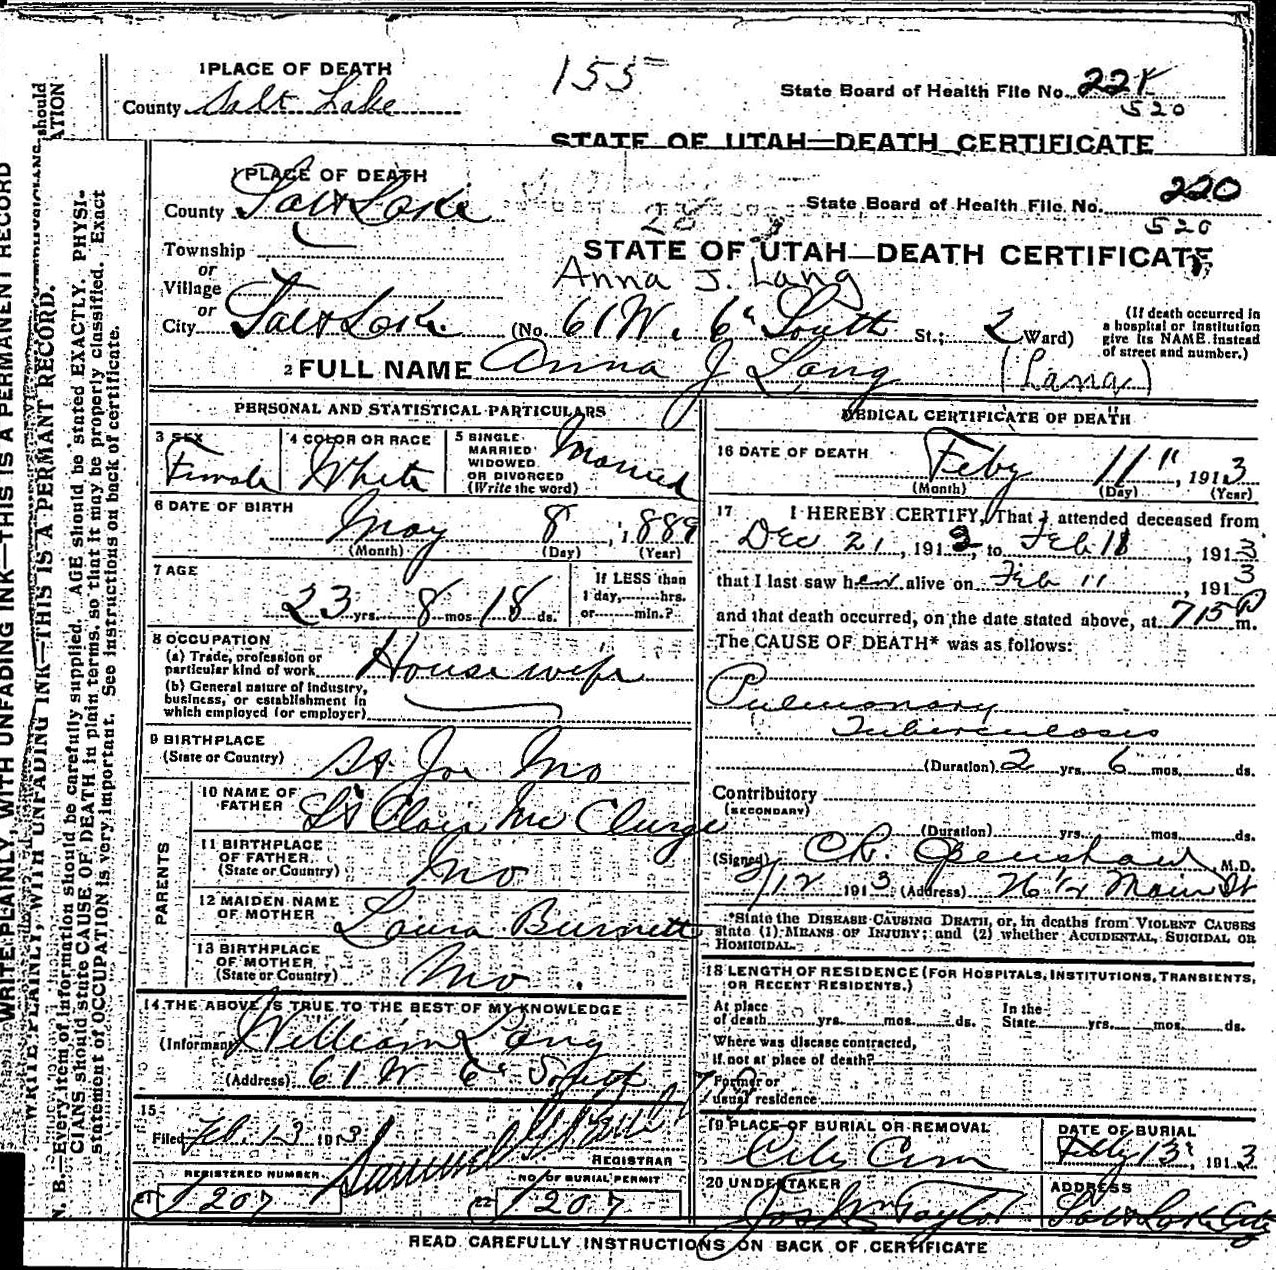 1 PLACE OF DEATH
County Salt Lake
155
State Board of Health File No. 221
520
STATE OF UTAH—DEATH CERTIFICATE
1 PLACE OF DEATH
County Salt Lake
State Board of Health File No. 220
520
28
STATE OF UTAH—DEATH CERTIFICATE
Township
or
Village
or
Anna J. Lang
City Salt Lake (No. 61 W. 6" South St.; 2 Ward)
(If death occurred in
a hospital or institution
give its NAME instead
of street and number.)
2 FULL NAME Anna J Lang (Lang)
PERSONAL AND STATISTICAL PARTICULARS
3 SEX Female
4 COLOR OR RACE White
5 SINGLE
MARRIED
WIDOWED
OR DIVORCED
(Write the word) Married
6 DATE OF BIRTH
May 8, 1889
(Month) (Day) (Year)
7 AGE
23 yrs. 8 mos. 18 ds.
If LESS than
1 day,......hrs.
or......min.?
8 OCCUPATION
(a) Trade, profession or
particular kind of work Housewife
(b) General nature of industry,
business, or establishment in
which employed (or employer)
9 BIRTHPLACE
(State or Country) St Joe Mo
PARENTS
10 NAME OF
FATHER St Clair Mc Clurge
11 BIRTHPLACE
OF FATHER
(State or Country) Mo
12 MAIDEN NAME
OF MOTHER Laura Burnett
13 BIRTHPLACE
OF MOTHER
(State or Country) Mo.
14 THE ABOVE IS TRUE TO THE BEST OF MY KNOWLEDGE
(Informant William Lang
(Address) 61 W 6" South
15
Filed Feb. 13 1913 Samuel
REGISTRAR
REGISTERED NUMBER
21 207
NO. OF BURIAL PERMIT
22 207
MEDICAL CERTIFICATE OF DEATH
16 DATE OF DEATH
Feby 11", 1913
(Month) (Day) (Year)
17 I HEREBY CERTIFY, That I attended deceased from
Dec 21, 1912, to Feb 18, 1913
that I last saw her alive on Feb 11, 1913
and that death occurred, on the date stated above, at 715 P m.
The CAUSE OF DEATH* was as follows:
Pulmonary
Tuberculosis
(Duration) 2 yrs. 6 mos. ds.
Contributory
(SECONDARY)
(Duration) yrs. mos. ds.
(Signed) C.R. Openshaw M.D.
2/12 1913 (Address) 76 1/2 Main St
*State the DISEASE CAUSING DEATH, or, in deaths from VIOLENT CAUSES
state (1) MEANS OF INJURY; and (2) whether ACCIDENTAL, SUICIDAL OR
HOMICIDAL.
18 LENGTH OF RESIDENCE (FOR HOSPITALS, INSTITUTIONS, TRANSIENTS,
OR RECENT RESIDENTS.)
At place
of death......yrs......mos......ds.
In the
State......yrs......mos......ds.
Where was disease contracted,
if not at place of death?
Former or
usual residence
19 PLACE OF BURIAL OR REMOVAL
City Cem
DATE OF BURIAL
Feby 13, 1913
20 UNDERTAKER
Jos Wm Taylor
ADDRESS
Salt Lake City
READ CAREFULLY INSTRUCTIONS ON BACK OF CERTIFICATE
WRITE PLAINLY, WITH UNFADING INK—THIS IS A PERMANENT RECORD
WRITE PLAINLY, WITH UNFADING INK—THIS IS A PERMANT RECORD.
N. B.—Every item of information should be carefully supplied. AGE should be stated EXACTLY. PHYSI-
CIANS should state CAUSE OF DEATH in plain terms, so that it may be properly classified. Exact
statement of OCCUPATION is very important. See instructions on back of certificate.